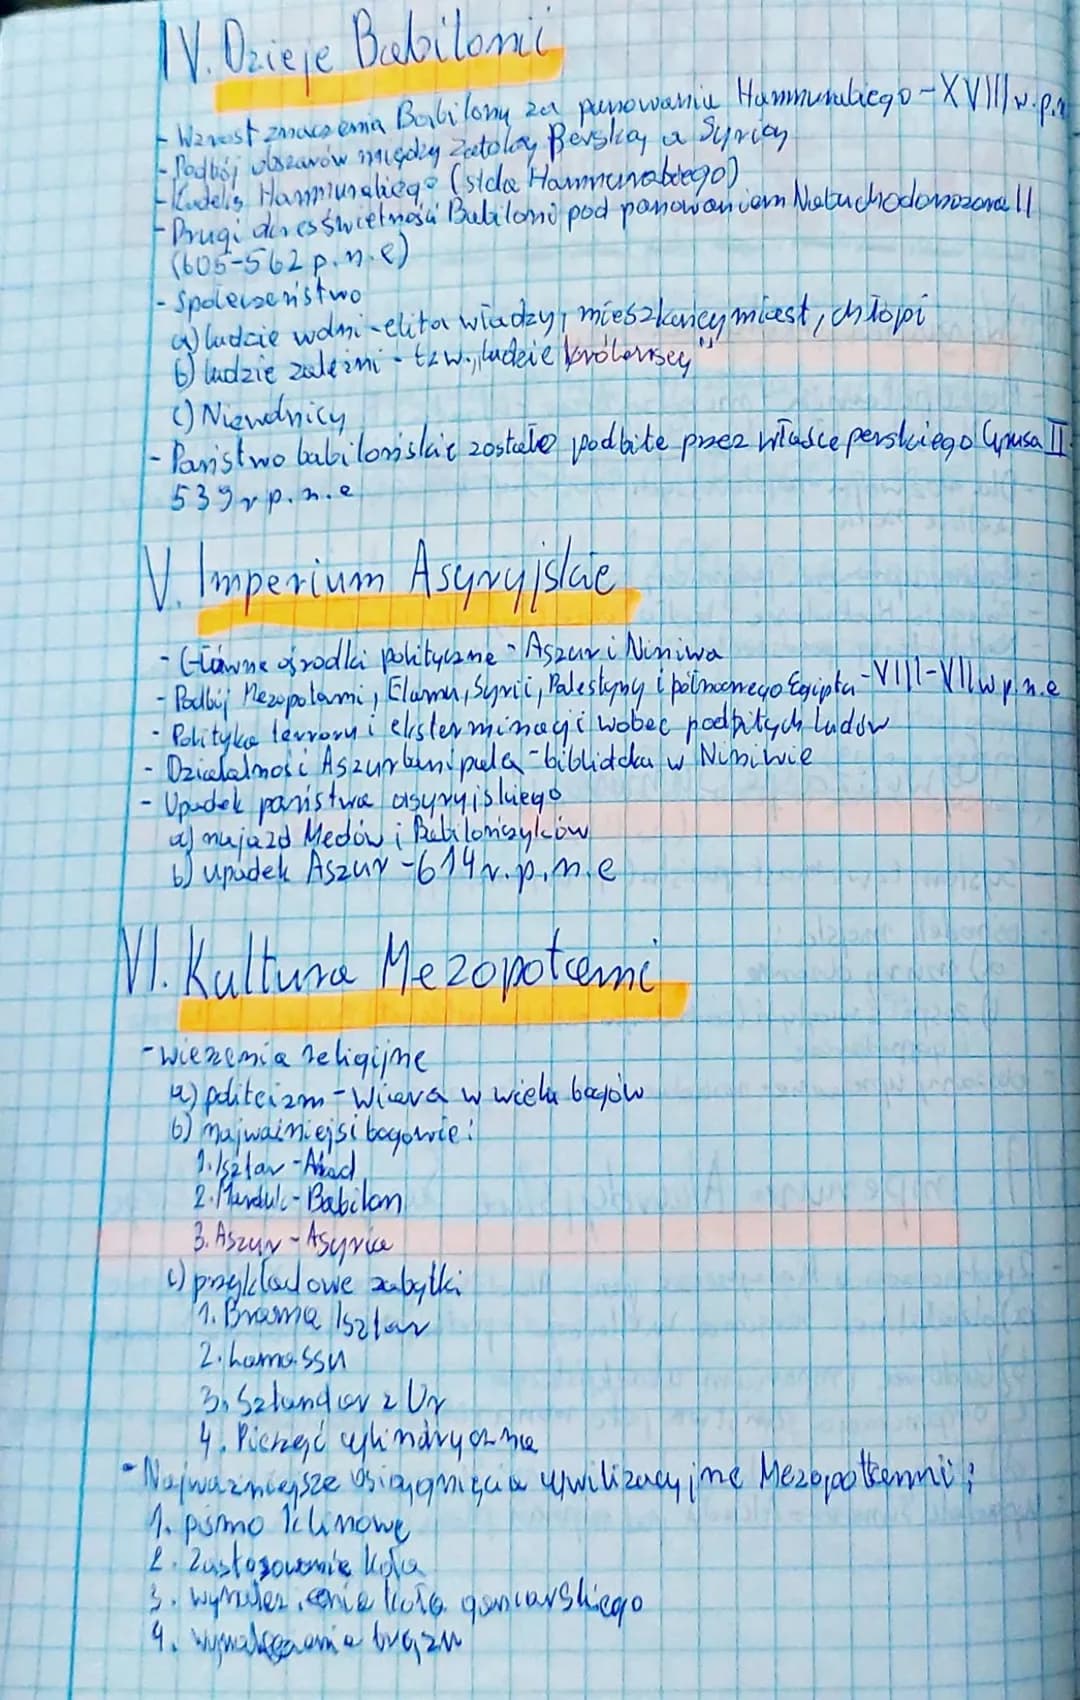 IV. Dzieje Babilonii
- Wzrost znaczenia Babilony za panowania Hammurabiego - XVIII w. p.n
- Podbój obszarów między Zatoką Perską a Syrią
- Kodeks Hammurabiego (stela Hammurabiego)
- Drugi okres świetności Babiloni pod panowaniem Nabuchodonozora II
(605-562 p.n.e)
- Społeczeństwo
a) ludzie wolni - elita władzy, mieszkańcy miast, chłopi
b) ludzie zależni - tzw. „ludzie królewscy"
c) Niewolnicy
- Państwo babilońskie zostało podbite przez władce perskiego Cyrusa II
539 r p.n.e
V. Imperium Asyryjskie
- Główne ośrodki polityczne - Aszur i Niniwa
- Podbój Mezopotami, Elamu, Syrii, Palestyny i północnego Egiptu - VIII-VII w p.n.e
- Polityka terroru i eksterminacji wobec podbitych ludów
- Działalność Aszurbanipala - biblioteka w Niniwie
- Upadek państwa asyryjskiego
a) najazd Medów i Babilończyków
b) upadek Aszur - 614 r. p.n.e
VI. Kultura Mezopotami
- wierzenia religijne
a) politeizm - wiara w wielu bogów
b) najważniejsi bogowie:
1. Isztar - Akad
2. Marduk - Babilon
3. Aszur - Asyria
c) przykładowe zabytki
1. Brama Isztar
2. Lamassu
3. Sztandar z Ur
4. Pieczęć cylindryczna
- Najważniejsze osiągnięcia cywilizacyjne Mezopotamii:
1. pismo klinowe
2. Zastosowanie koła
3. wynalezienie koła garncarskiego
4. wynalezienie brązu